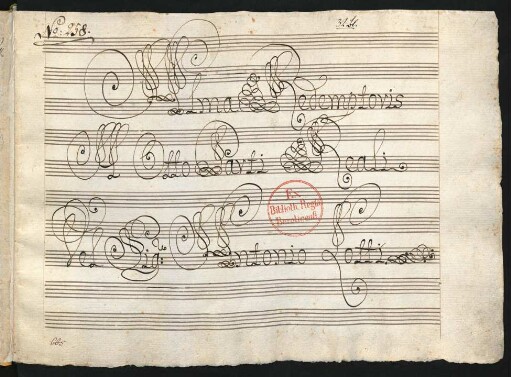 No: 258.
Alma Redemptoris
A Otto Parti Reali
Del Sig: Antonio Lotti
Ex
Biblioth. Regia
Berolinensi